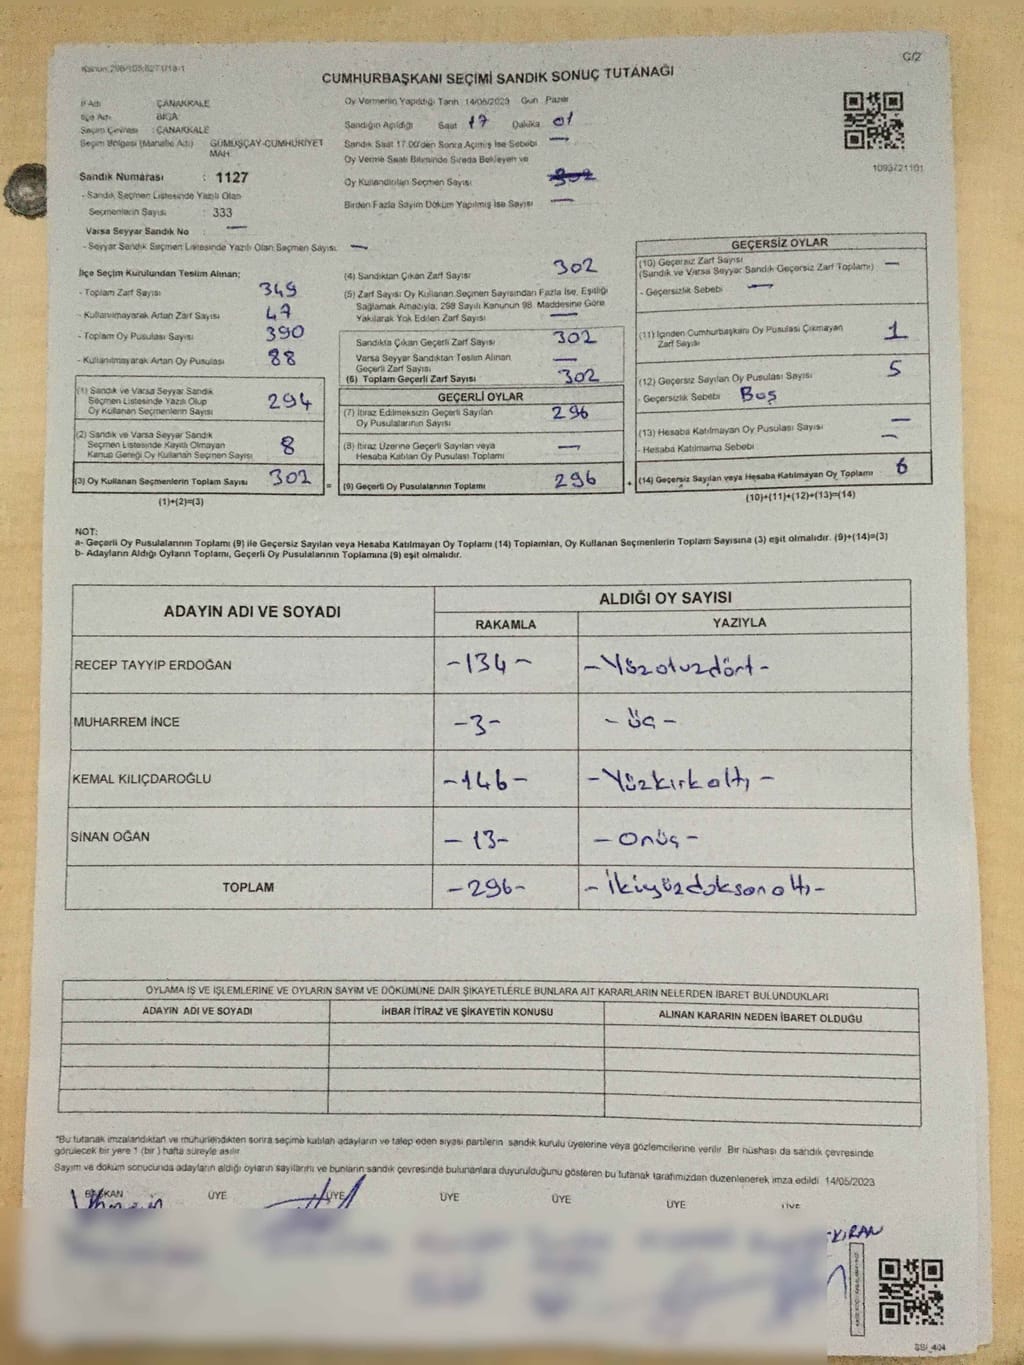 Kanun:298/105,6271/18-1
C/2
CUMHURBAŞKANI SEÇİMİ SANDIK SONUÇ TUTANAĞI
İl Adı : ÇANAKKALE
İlçe Adı : BİGA
Seçim Çevresi : ÇANAKKALE
Seçim Bölgesi (Mahalle Adı) : GÜMÜŞÇAY-CUMHURİYET MAH.
Sandık Numarası : 1127
- Sandık Seçmen Listesinde Yazılı Olan
Seçmenlerin Sayısı : 333
Varsa Seyyar Sandık No : —
- Seyyar Sandık Seçmen Listesinde Yazılı Olan Seçmen Sayısı: —
Oy Vermenin Yapıldığı Tarih 14/05/2023 Gün Pazar
Sandığın Açıldığı Saat 17 Dakika 01
Sandık Saat 17.00'den Sonra Açılmış İse Sebebi —
Oy Verme Saati Bitiminde Sırada Bekleyen ve
Oy Kullandırılan Seçmen Sayısı 302
Birden Fazla Sayım Döküm Yapılmış İse Sayısı —
1093721101
İlçe Seçim Kurulundan Teslim Alınan;
- Toplam Zarf Sayısı 349
- Kullanılmayarak Artan Zarf Sayısı 47
- Toplam Oy Pusulası Sayısı 390
- Kullanılmayarak Artan Oy Pusulası 88
(1) Sandık ve Varsa Seyyar Sandık
Seçmen Listesinde Yazılı Olup
Oy Kullanan Seçmenlerin Sayısı 294
(2) Sandık ve Varsa Seyyar Sandık
Seçmen Listesinde Kayıtlı Olmayan
Kanun Gereği Oy Kullanan Seçmen Sayısı 8
(3) Oy Kullanan Seçmenlerin Toplam Sayısı 302 =
(1)+(2)=(3)
(4) Sandıktan Çıkan Zarf Sayısı 302
(5) Zarf Sayısı Oy Kullanan Seçmen Sayısından Fazla İse, Eşitliği
Sağlamak Amacıyla, 298 Sayılı Kanunun 98. Maddesine Göre
Yakılarak Yok Edilen Zarf Sayısı —
Sandıkta Çıkan Geçerli Zarf Sayısı 302
Varsa Seyyar Sandıktan Teslim Alınan
Geçerli Zarf Sayısı —
(6) Toplam Geçerli Zarf Sayısı 302
GEÇERLİ OYLAR
(7) İtiraz Edilmeksizin Geçerli Sayılan
Oy Pusulalarının Sayısı 296
(8) İtiraz Üzerine Geçerli Sayılan veya
Hesaba Katılan Oy Pusulası Toplamı —
(9) Geçerli Oy Pusulalarının Toplamı 296 +
GEÇERSİZ OYLAR
(10) Geçersiz Zarf Sayısı —
(Sandık ve Varsa Seyyar Sandık Geçersiz Zarf Toplamı)
- Geçersizlik Sebebi —
(11) İçinden Cumhurbaşkanı Oy Pusulası Çıkmayan
Zarf Sayısı 1
(12) Geçersiz Sayılan Oy Pusulası Sayısı 5
- Geçersizlik Sebebi Boş
(13) Hesaba Katılmayan Oy Pusulası Sayısı —
- Hesaba Katılmama Sebebi —
(14) Geçersiz Sayılan veya Hesaba Katılmayan Oy Toplamı 6
(10)+(11)+(12)+(13)=(14)
NOT:
a- Geçerli Oy Pusulalarının Toplamı (9) ile Geçersiz Sayılan veya Hesaba Katılmayan Oy Toplamı (14) Toplamları, Oy Kullanan Seçmenlerin Toplam Sayısına (3) eşit olmalıdır. (9)+(14)=(3)
b- Adayların Aldığı Oyların Toplamı, Geçerli Oy Pusulalarının Toplamına (9) eşit olmalıdır.
ADAYIN ADI VE SOYADI ALDIĞI OY SAYISI
RAKAMLA YAZIYLA
RECEP TAYYİP ERDOĞAN -134- -Yüzotuzdört-
MUHARREM İNCE -3- -üç-
KEMAL KILIÇDAROĞLU -146- -Yüzkırkaltı-
SİNAN OĞAN -13- -onüç-
TOPLAM -296- -İkiyüzdoksanaltı-
OYLAMA İŞ VE İŞLEMLERİNE VE OYLARIN SAYIM VE DÖKÜMÜNE DAİR ŞİKAYETLERLE BUNLARA AİT KARARLARIN NELERDEN İBARET BULUNDUKLARI
ADAYIN ADI VE SOYADI İHBAR İTİRAZ VE ŞİKAYETİN KONUSU ALINAN KARARIN NEDEN İBARET OLDUĞU
*Bu tutanak imzalandıktan ve mühürlendikten sonra seçime katılan adayların ve talep eden siyasi partilerin sandık kurulu üyelerine veya gözlemcilerine verilir. Bir nüshası da sandık çevresinde
görülecek bir yere 1 (bir) hafta süreyle asılır.
Sayım ve döküm sonucunda adayların aldığı oyların sayılarını ve bunların sandık çevresinde bulunanlara duyurulduğunu gösteren bu tutanak tarafımızdan düzenlenerek imza edildi. 14/05/2023
BAŞKAN ÜYE ÜYE ÜYE ÜYE ÜYE ÜYE
KIRAN
SSI_404